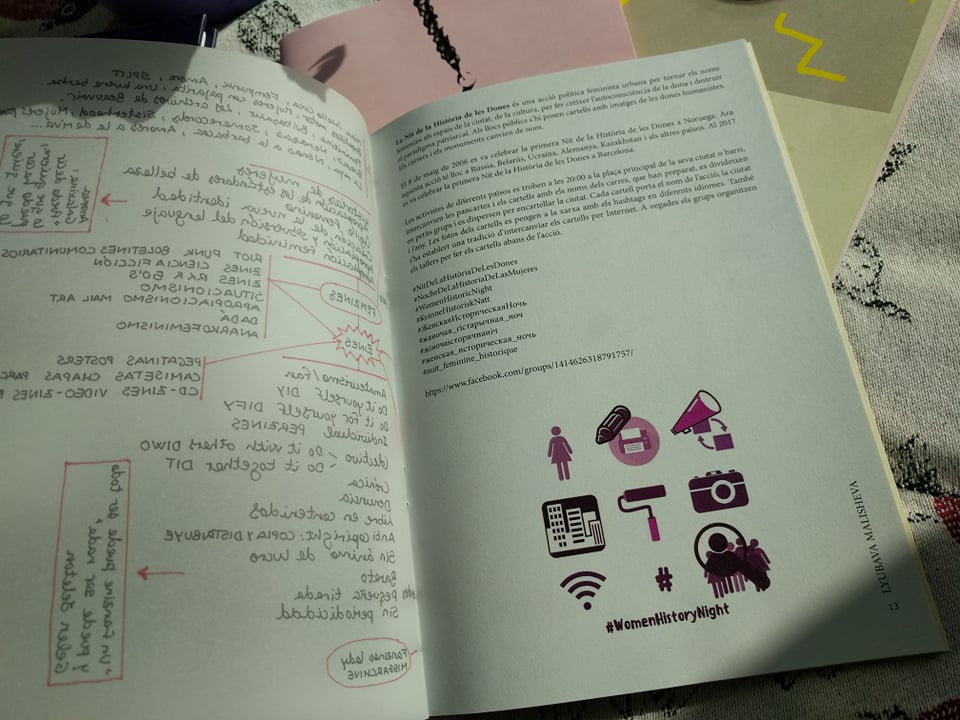 Fanpunk, Andre, SPLIT
pajarita, una buena barba
los archivos de Beauvoir
Sisterhood
de mujeres
de los estándares de belleza
nueva identidad
y subversión del lenguaje
Feminidad
RIOT PUNK BOLETINES COMUNITARIOS
ZINES CIENCIA FICCIÓN
ZINES R&R 50'S
SITUACIONISMO
APROPIACIONISMO MAIL ART
DADÁ
ANARKOFEMINISMO
FEMZINES
ZINES
PEGATINAS POSTERS
CAMISETAS CHAPAS
CD-ZINES VIDEO-ZINES
Amateurismo/Fan
Do it yourself DIY
Do it for yourself DIFY
Individual PERZINES
Colectivo - Do it with others DIWO
- Do it together DIT
Crónica
Denuncia
Libre en contenidos
Anti Copyright: COPIA Y DISTRIBUYE
Sin ánimo de lucro
Barato
Pequeña tirada
Sin periodicidad
"Un fanzine puede ser todo
y puede ser nada"
Gelen Jeleton
Fanzines lady
MISSARCHIVE
La Nit de la Història de les Dones és una acció política feminista urbana per tornar els noms
femenins als espais de la ciutat, de la cultura, per fer créixer l'autoconsciència de la dona i destruir
el paradigma patriarcal. Als llocs públics s'hi posen cartells amb imatges de les dones humanistes.
Els carrers i els monuments canvien de nom.
El 8 de maig de 2006 es va celebrar la primera Nit de la Història de les Dones a Noruega. Ara
aquesta acció té lloc a Rússia, Belarús, Ucraïna, Alemanya, Kazakhstan i als altres països. Al 2017
es va celebrar la primera Nit de la Història de les Dones a Barcelona.
Les activistes de diferents països es troben a les 20:00 a la plaça principal de la seva ciutat o barri,
intercanvien les pancartes i els cartells amb els noms dels carrers, que han preparat, es divideixen
en petits grups i es dispersen per encartellar la ciutat. Cada cartell porta el nom de l'acció, la ciutat
i l'any. Les fotos dels cartells es pengen a la xarxa amb els hashtags en diferents idiomes. També
s'ha establert una tradició d'intercanviar els cartells per Internet. A vegades els grups organitzen
els tallers per fer els cartells abans de l'acció.
#NitDeLaHistòriaDeLesDones
#NocheDeLaHistoriaDeLasMujeres
#WomenHistoricNight
#KvinneHistoriskNatt
#ЖенскаяИсторическаяНочь
#жаночая_гістарычная_ноч
#жіночаісторичнаніч
#женская_историческая_ночь
#nuit_feminine_historique
https://www.facebook.com/groups/1414626318791757/
#
#WomenHistoryNight
LYUBAVA MALISHEVA
13